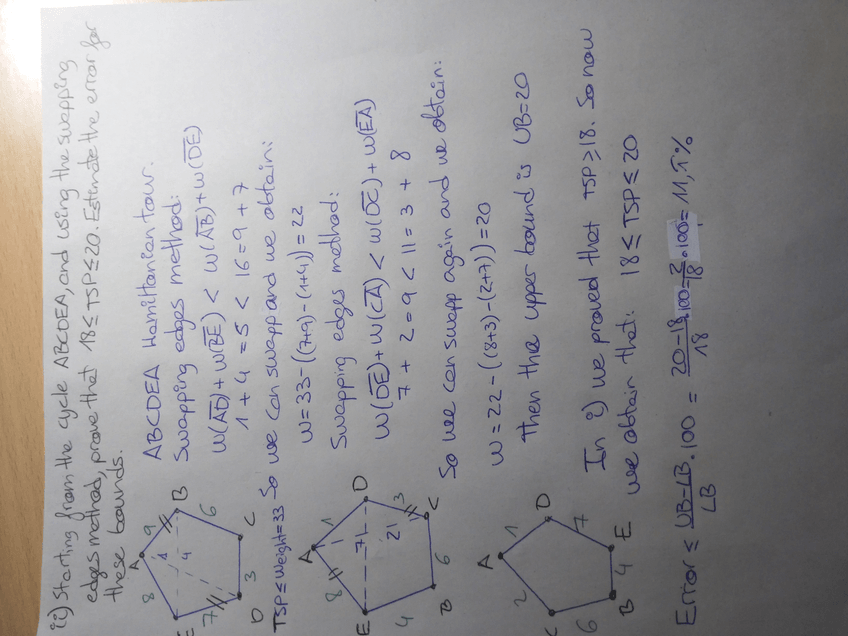 ii) Starting from the cycle ABCDEA, and using the swapping
edges method, prove that 18≤TSP≤20. Estimate the error for
these bounds.
ABCDEA Hamiltonian tour.
Swapping edges method:
W(AD)+W(BE) < W(AB)+W(DE)
1 + 4 = 5 < 16 = 9 + 7
So we can swapp and we obtain:
W=33-((7+9)-(1+4))=22
Swapping edges method:
W(DE)+W(CA) < W(DC)+W(EA)
7 + 2 = 9 < 11 = 3 + 8
So we can swapp again and we obtain:
W=22-((8+3)-(2+7))=20
Then the upper bound is UB=20
In i) we proved that TSP≥18. So now
we obtain that: 18≤TSP≤20
Error ≤ UB-LB/LB · 100 = 20-18/18 · 100 = 2/18 · 100 = 11,1%
A
9
B
6
C
3
D
7
E
8
1
4
TSP≤Weight=33
A
1
D
3
C
6
B
4
E
8
7
2
A
1
D
7
E
4
B
6
C
2